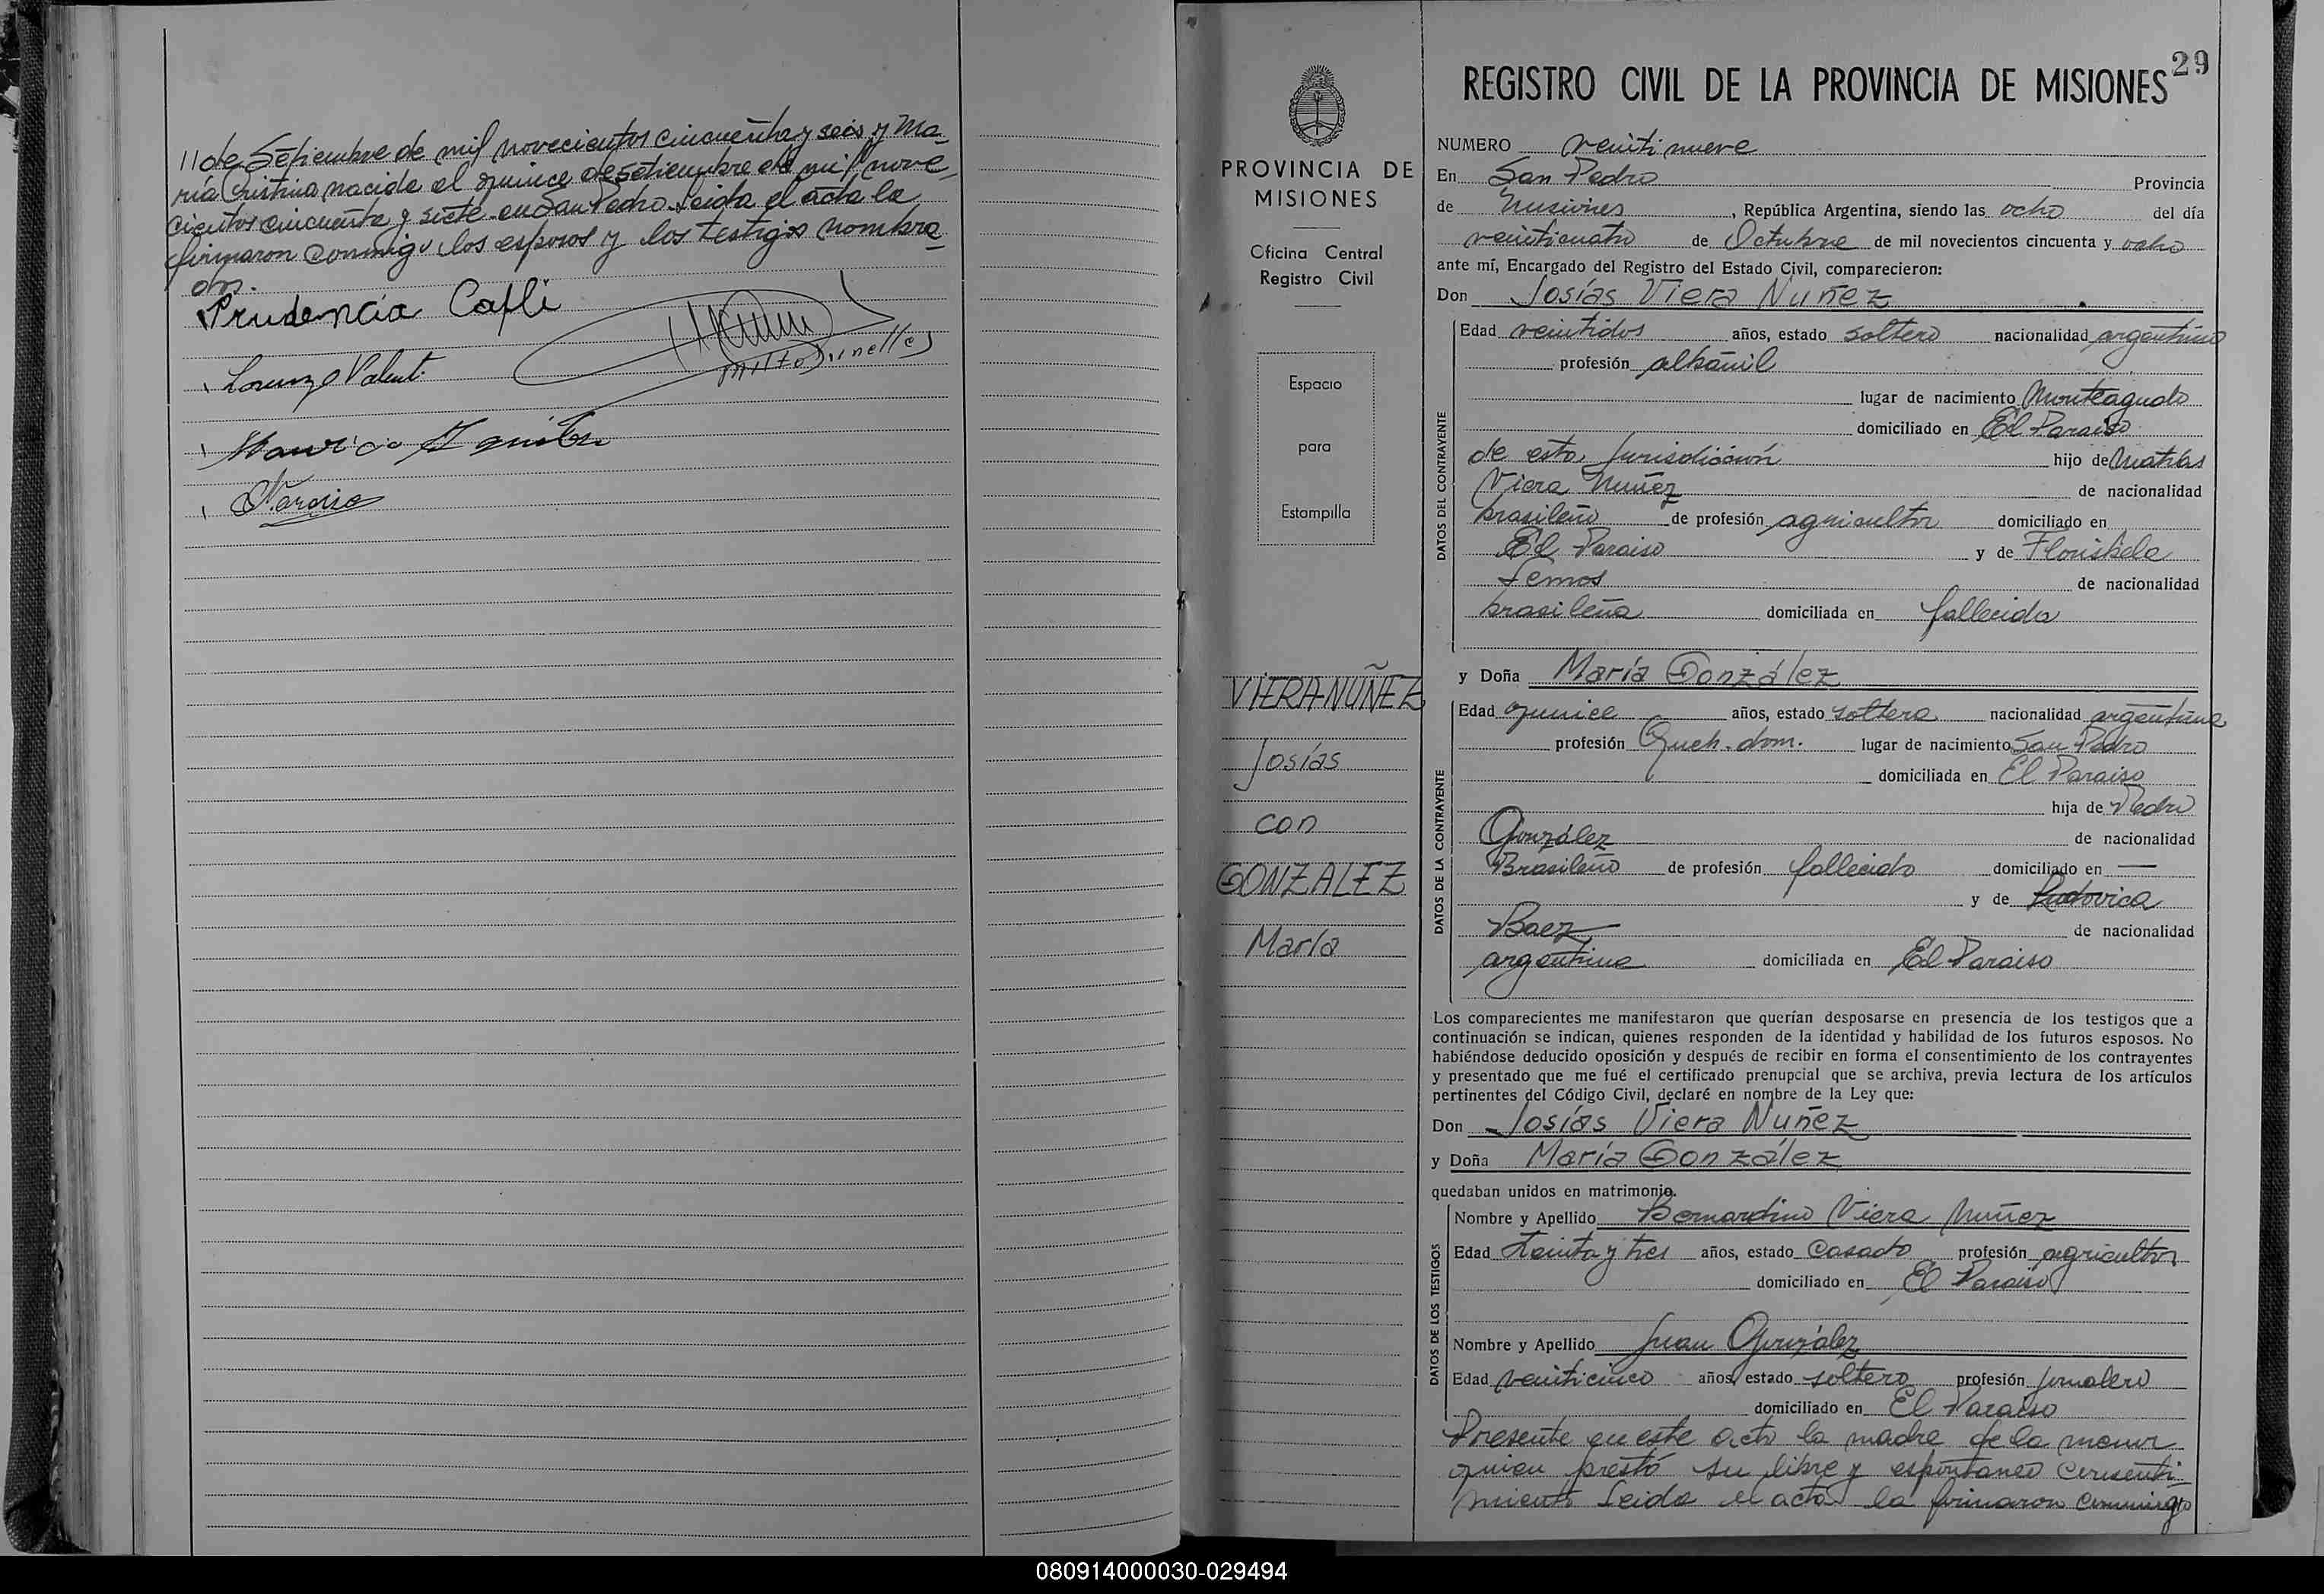 11 de Setiembre de mil novecientos cincuenta y seis y Ma-
ria Cristina nacida el quince de setiembre de mil nove-
cientos cincuenta y siete en San Pedro. Leida el acta la
firmaron conmigo los esposos y los testigos nombra-
dos.
Prudencia Cafli
Lorenzo Valent.
29
REGISTRO CIVIL DE LA PROVINCIA DE MISIONES
PROVINCIA DE
MISIONES
Oficina Central
Registro Civil
Espacio
para
Estampilla
VIERA-NUÑEZ
Josías
con
GONZALEZ
María
NUMERO veinti nueve
En San Pedro Provincia
de Misiones, República Argentina, siendo las ocho del día
veinticuatro de Octubre de mil novecientos cincuenta y ocho
ante mí, Encargado del Registro del Estado Civil, comparecieron:
Don Josías Viera Nuñez
DATOS DEL CONTRAYENTE
Edad veintidos años, estado soltero nacionalidad argentino
profesión albañil
lugar de nacimiento Monteagudo
domiciliado en El Paraiso
de esta Jurisdicción hijo de Matias
Viera Nuñez de nacionalidad
brasileño de profesión agricultor domiciliado en
El Paraiso y de Florisbela
Lemos de nacionalidad
brasileña domiciliada en fallecida
y Doña María González
DATOS DE LA CONTRAYENTE
Edad quince años, estado soltera nacionalidad argentina
profesión Queh. dom. lugar de nacimiento San Pedro
domiciliada en El Paraiso
hija de Pedro
González de nacionalidad
Brasileño de profesión fallecido domiciliado en —
y de Ludovica
Baez de nacionalidad
argentina domiciliada en El Paraiso
Los comparecientes me manifestaron que querían desposarse en presencia de los testigos que a
continuación se indican, quienes responden de la identidad y habilidad de los futuros esposos. No
habiéndose deducido oposición y después de recibir en forma el consentimiento de los contrayentes
y presentado que me fué el certificado prenupcial que se archiva, previa lectura de los artículos
pertinentes del Código Civil, declaré en nombre de la Ley que:
Don Josías Viera Nuñez
y Doña María González
quedaban unidos en matrimonio.
DATOS DE LOS TESTIGOS
Nombre y Apellido Bernardino Viera Nuñez
Edad treinta y tres años, estado Casado profesión agricultor
domiciliado en El Paraiso
Nombre y Apellido Juan González
Edad veinticinco años, estado soltero profesión jornalero
domiciliado en El Paraiso
Presente en este acto la madre de la menor
quien prestó su libre y espontaneo consenti-
miento Leida el acta la firmaron conmigo
080914000030-029494